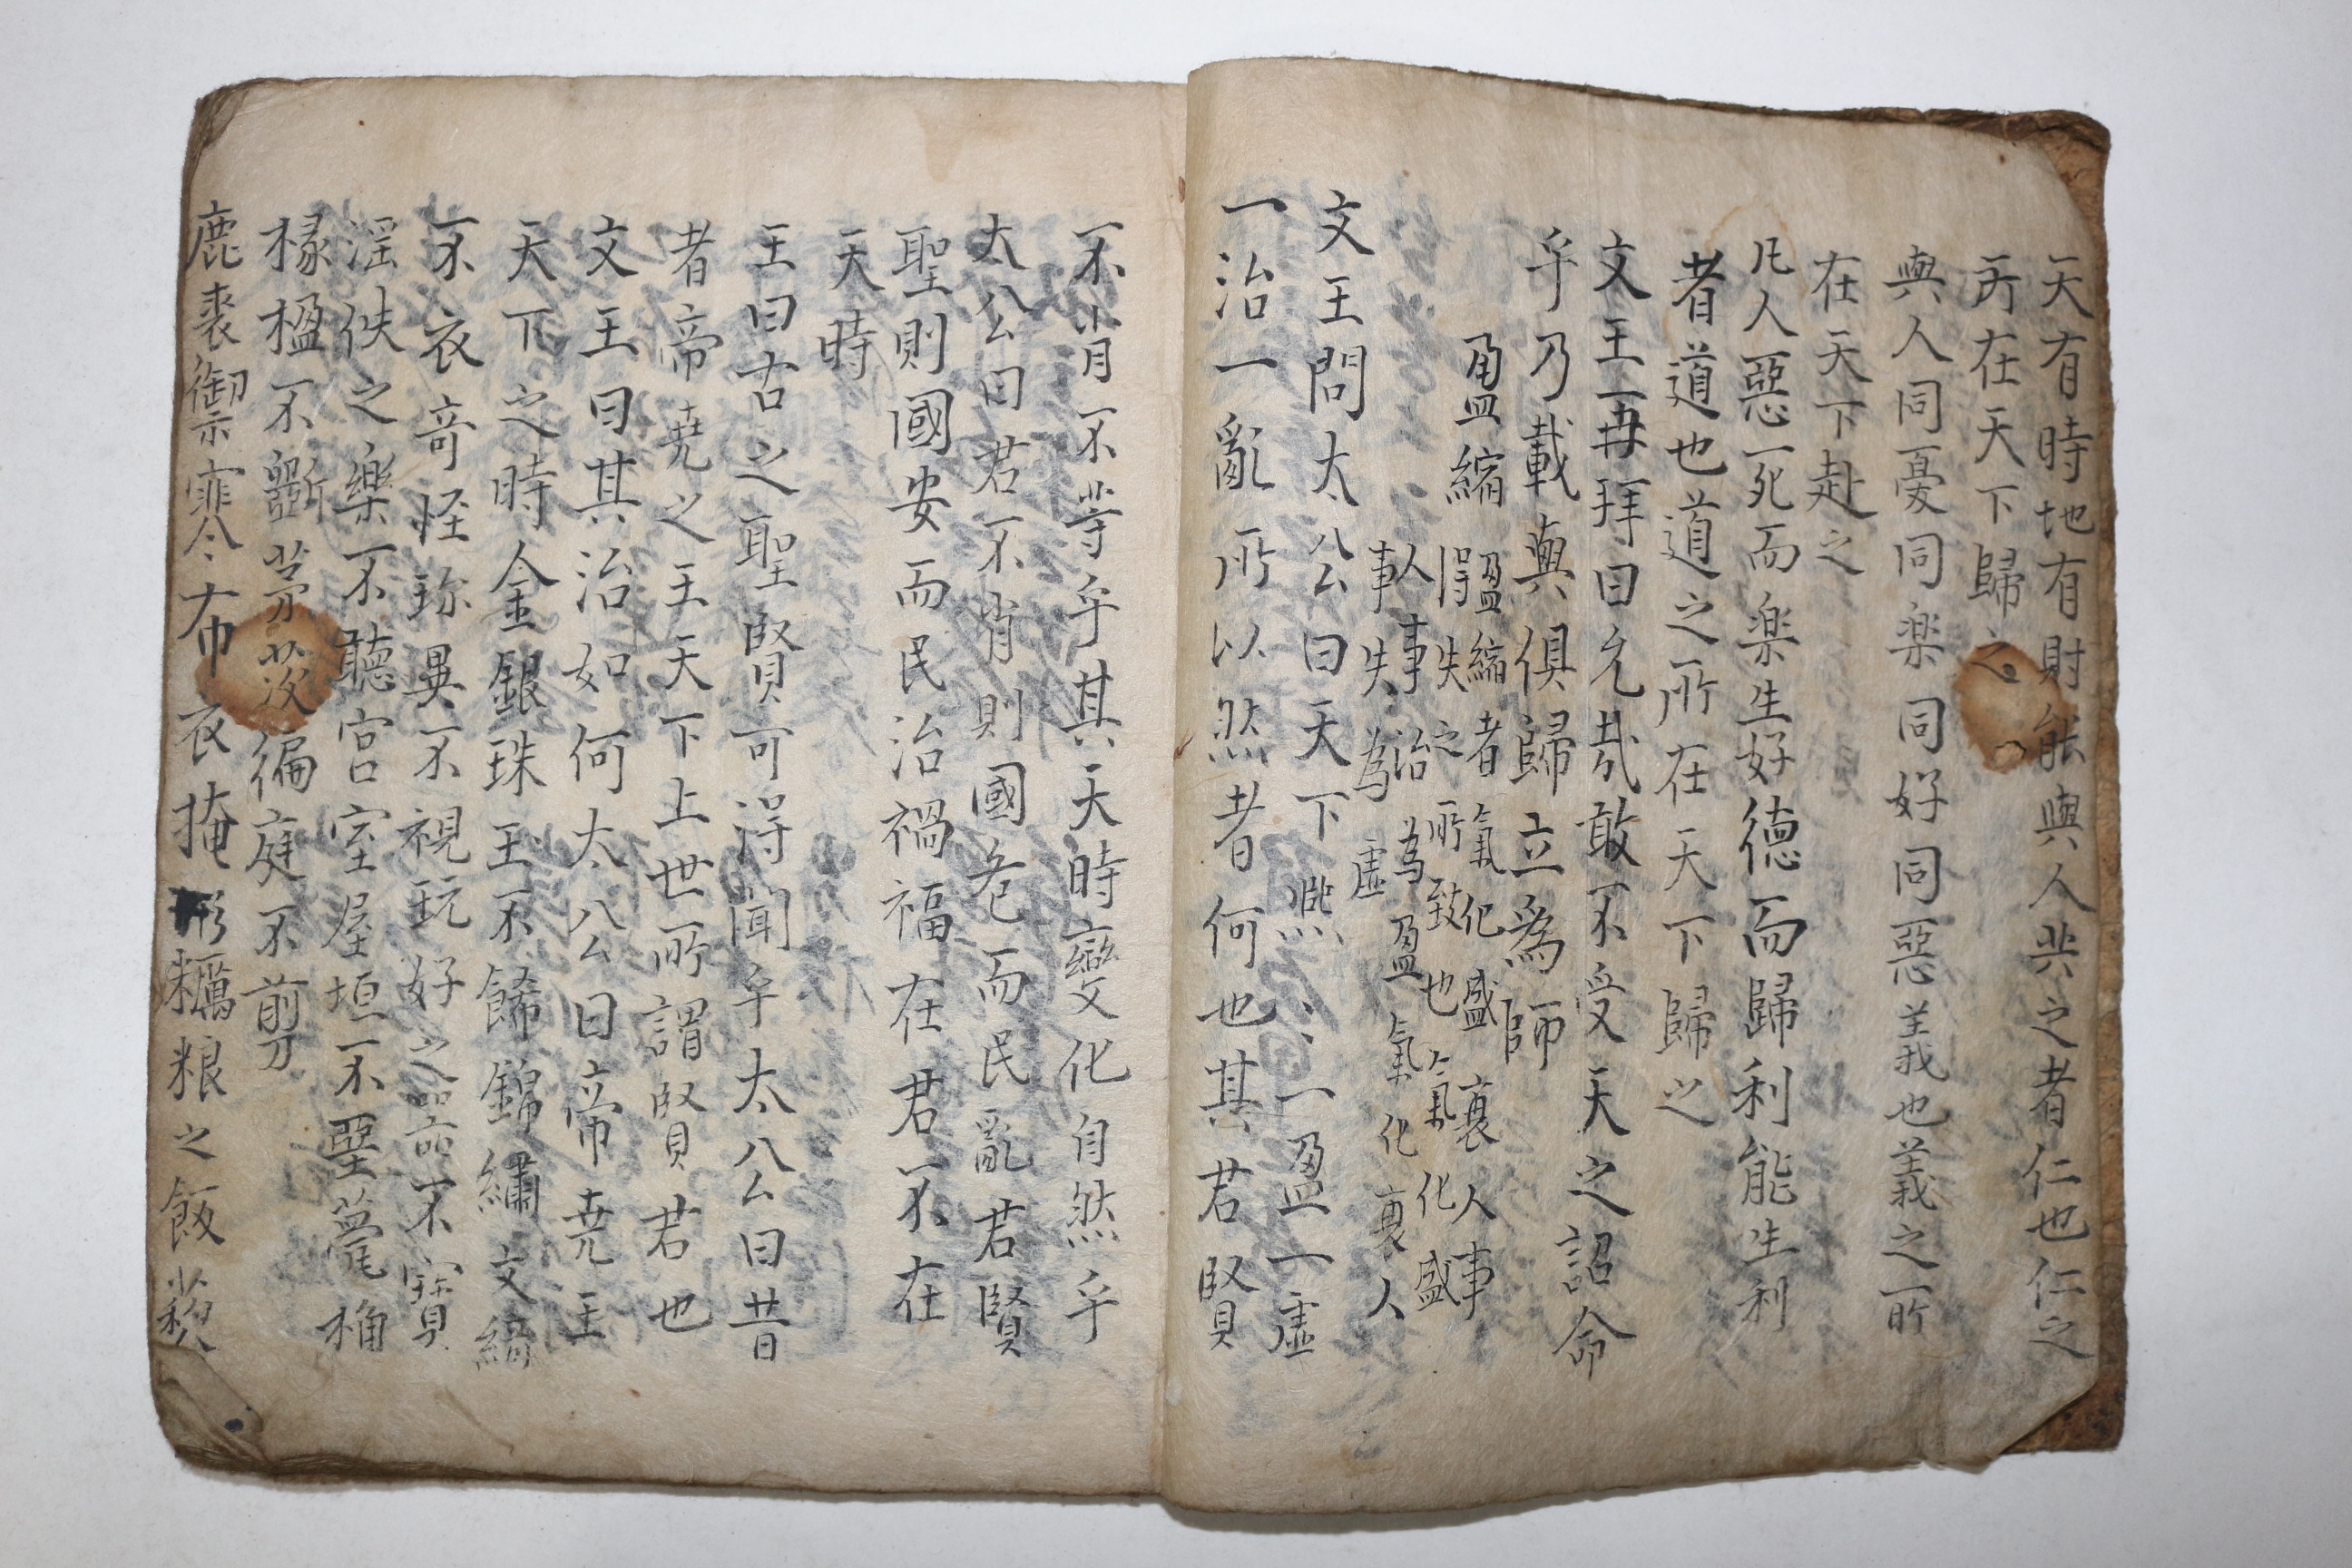 天有時地有財能與人共之者仁也仁之
所在天下歸之
與人同憂同楽同好同惡義也義之所
在天下赴之
凡人惡死而楽生好德而歸利能生利
者道也道之所在天下歸之
文王再拜曰允哉敢不受天之詔命
乎乃載與俱歸立為師
盈縮
盈縮者氣化盛衰人事
得失之所致也氣化盛
人事治為盈氣化衰人
事失為虛
文王問太公曰天下熈〻一盈一虛
一治一亂所以然者何也其君賢
不肖不等乎其天時變化自然乎
太公曰君不肖則國危而民亂君賢
聖則國安而民治禍福在君不在
天時
王曰古之聖賢可淂聞乎太公曰昔
者帝尭之王天下上世所謂賢君也
文王曰其治如何太公曰帝尭王
天下之時金銀珠玉不餙錦繡文綺
不衣竒怪珎異不視玩好之噐不寳
淫佚之樂不聽宮室屋垣不堊甍桷
椽楹不斵茅茨徧庭不剪
鹿裘御寒布衣掩形糲粮之飯藜